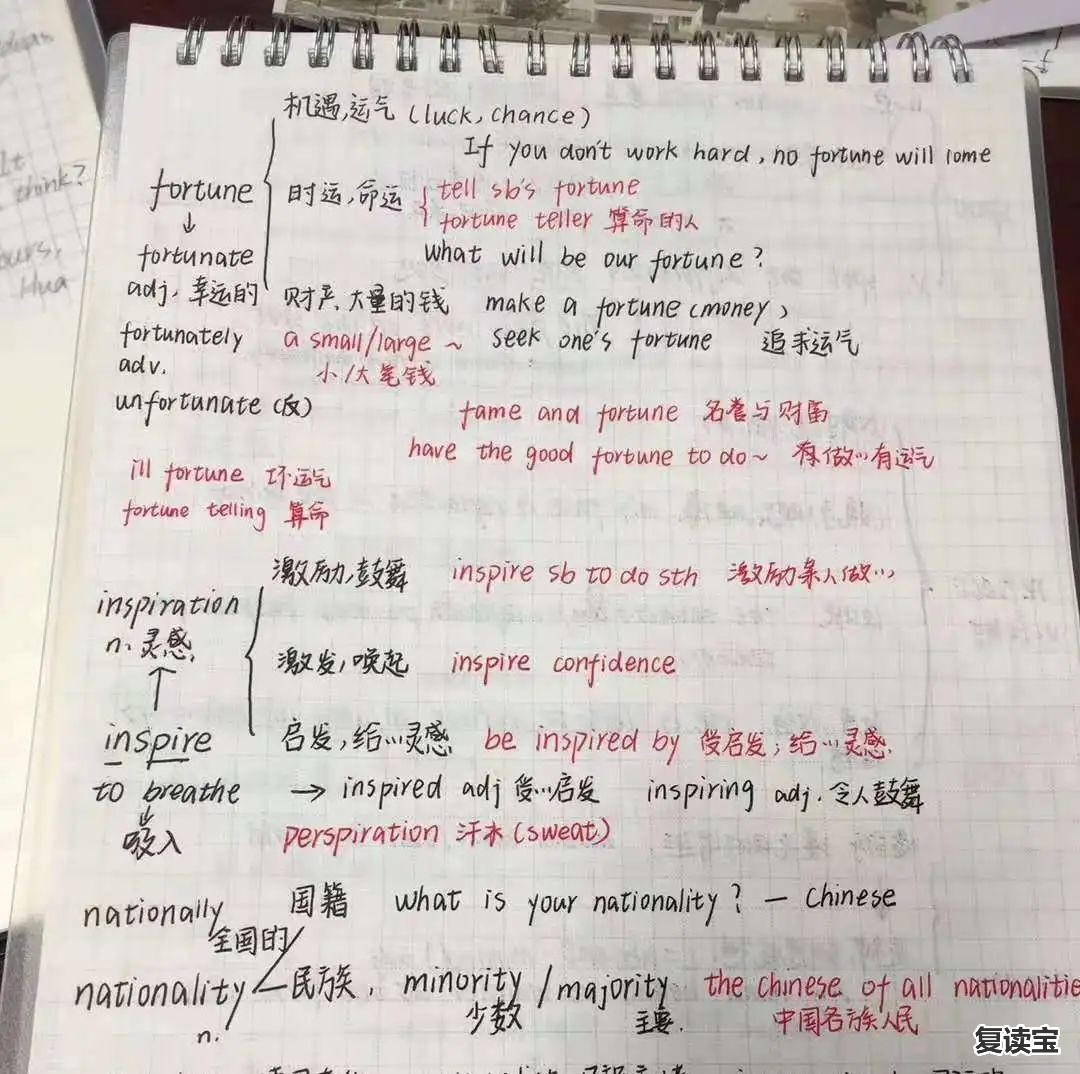 机遇,运气 (luck, chance)
If you don't work hard, no fortune will come
fortune
时运,命运
tell sb's fortune
fortune teller 算命的人
↓
fortunate
What will be our fortune?
adj. 幸运的
财产、大量的钱 make a fortune (money)
fortunately
a small/large ~ seek one's fortune 追求运气
adv.
小/大笔钱
unfortunate (反)
fame and fortune 名誉与财富
have the good fortune to do~ 有做…有运气
ill fortune 坏运气
fortune telling 算命
激励,鼓舞 inspire sb to do sth 激励某人做…
inspiration
n. 灵感
激发,唤起 inspire confidence
↑
inspire 启发,给…灵感 be inspired by 受启发;给…灵感
to breathe → inspired adj 受…启发 inspiring adj. 令人鼓舞
↓
吸入
perspiration 汗水 (sweat)
nationally
国籍 what is your nationality? — Chinese
全国的
nationality
民族, minority / majority the chinese of all nationalitie
n.
少数 主要. 中国各族人民
复读宝
think?
ours,
Hua